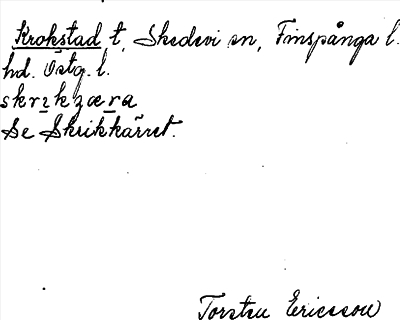 Krokstad t, Skedevi sn, Finspånga l.
hd. Östg. l.
skrɪkʒæra
Se Skrikkärret.
Torsten Ericsson